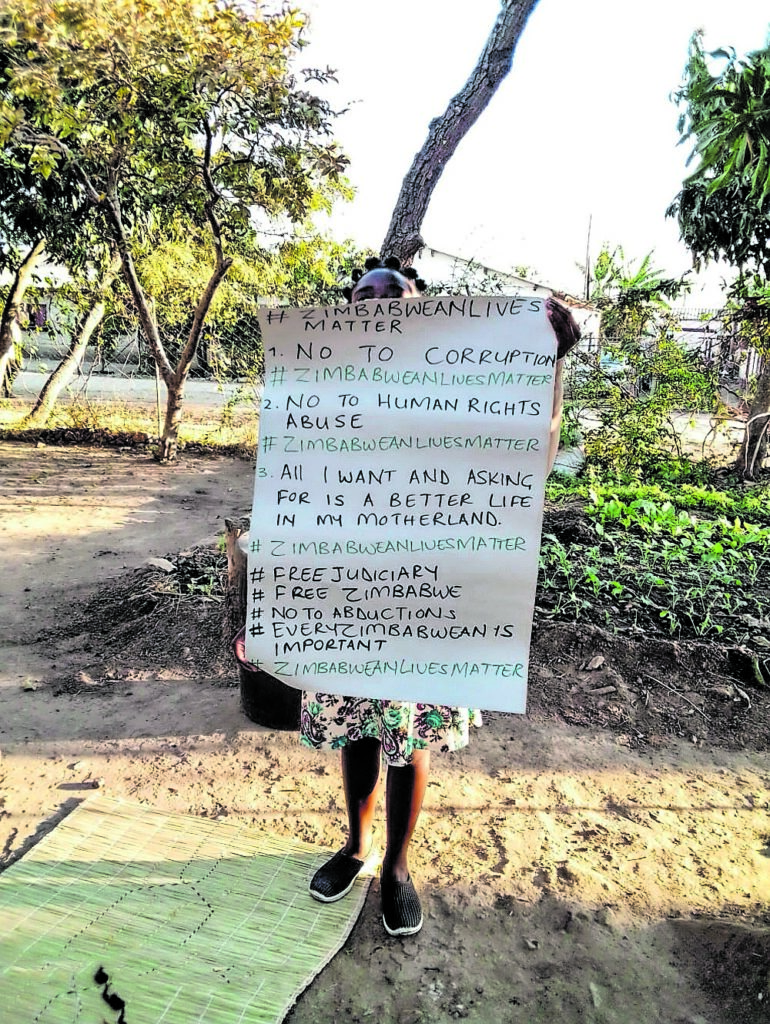 # ZIMBABWEANLIVES
MATTER
1. NO TO CORRUPTION
# ZIMBABWEANLIVESMATTER
2. NO TO HUMAN RIGHTS
ABUSE
# ZIMBABWEANLIVESMATTER
3. All I WANT AND ASKING
FOR IS A BETTER LIFE
IN MY MOTHERLAND.
# ZIMBABWEANLIVESMATTER
# FREE JUDICIARY
# FREE ZIMBABWE
# NO TO ABDUCTIONS
# EVERYZIMBABWEAN IS
IMPORTANT
# ZIMBABWEANLIVESMATTER